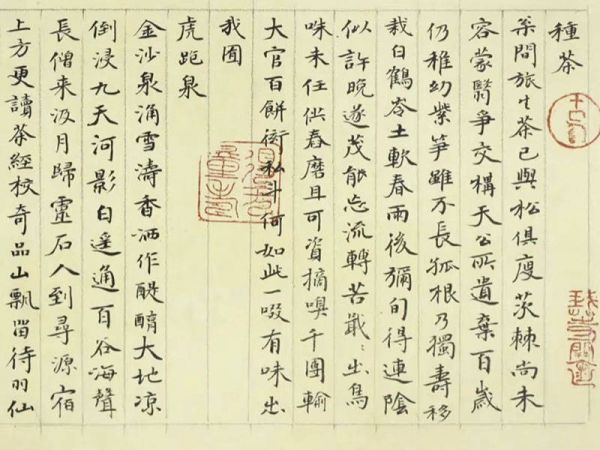 種茶
枀間旅生茶已與松俱瘦茨棘尚未
容蒙翳爭交構天公所遺棄百歲
仍稚幼紫笋雖不長孤根乃獨壽移
栽白鶴岺土軟春雨後彌旬得連陰
似許晚遂茂能忘流轉苦戢〻出鳥
咮未任供舂磨且可資摘嗅千團輸
大官百餅衒私斗何如此一啜有味出
我囿
虎跑泉
金沙泉涌雪濤香洒作醍醐大地凉
倒浸九天河影白遥通百谷海聲
長僧来汲月歸靈石人到尋源宿
上方更讀茶經校奇品山瓢留待羽仙